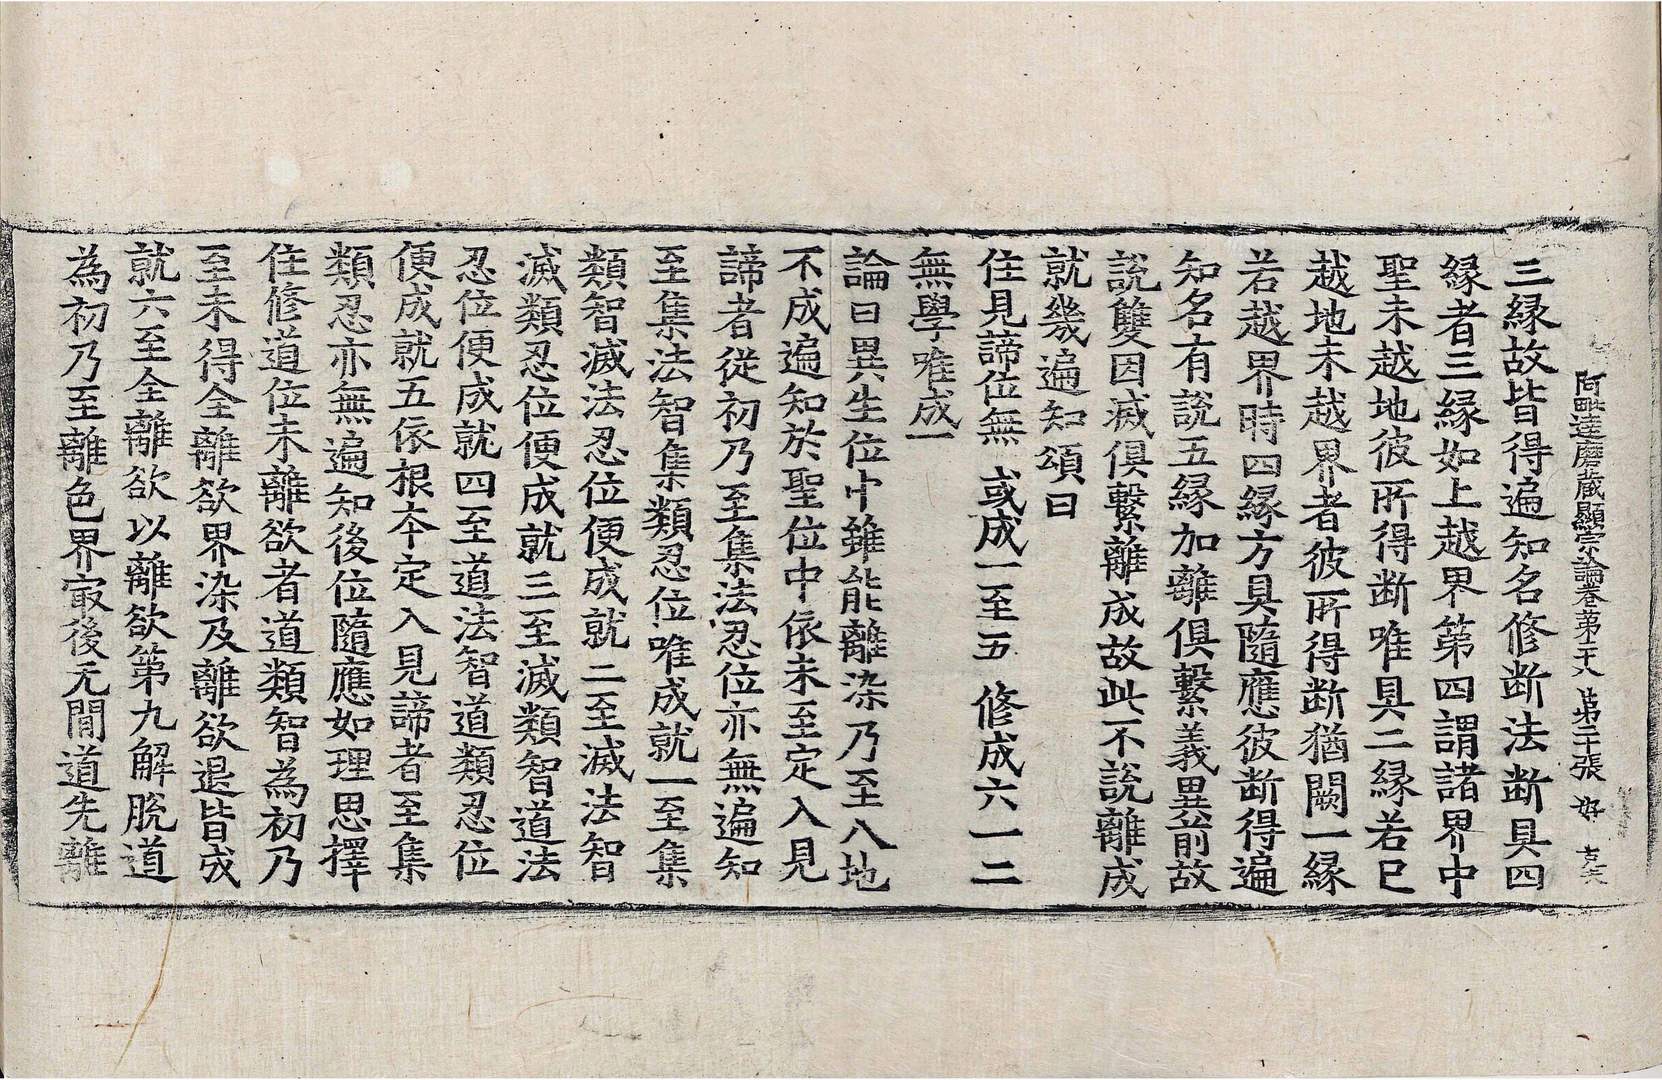 阿毗達磨藏顯宗論卷第十八 第二十張 好
三緣故皆得遍知名修断法断具四
緣者三緣如上越界第四謂諸界中
聖未越地彼所得断唯具二緣若已
越地未越界者彼所得断猶闕一緣
若越界時四緣方具隨應彼断得遍
知名有說五緣加離俱繫義異前故
說雙因滅俱繫離成故此不說離成
就幾遍知頌曰
住見諦位無 或成一至五 修成六一二
無學唯成一
論曰異生位中雖能離染乃至八地
不成遍知於聖位中依未至定入見
諦者從初乃至集法忍位亦無遍知
至集法智集類忍位唯成就一至集
類智滅法忍位便成就二至滅法智
滅類忍位便成就三至滅類智道法
忍位便成就四至道法智道類忍位
便成就五依根本定入見諦者至集
類忍亦無遍知後位隨應如理思擇
住修道位未離欲者道類智為初乃
至未得全離欲界染及離欲退皆成
就六至全離欲以離欲第九解脫道
為初乃至離色界㝡後无閒道先離